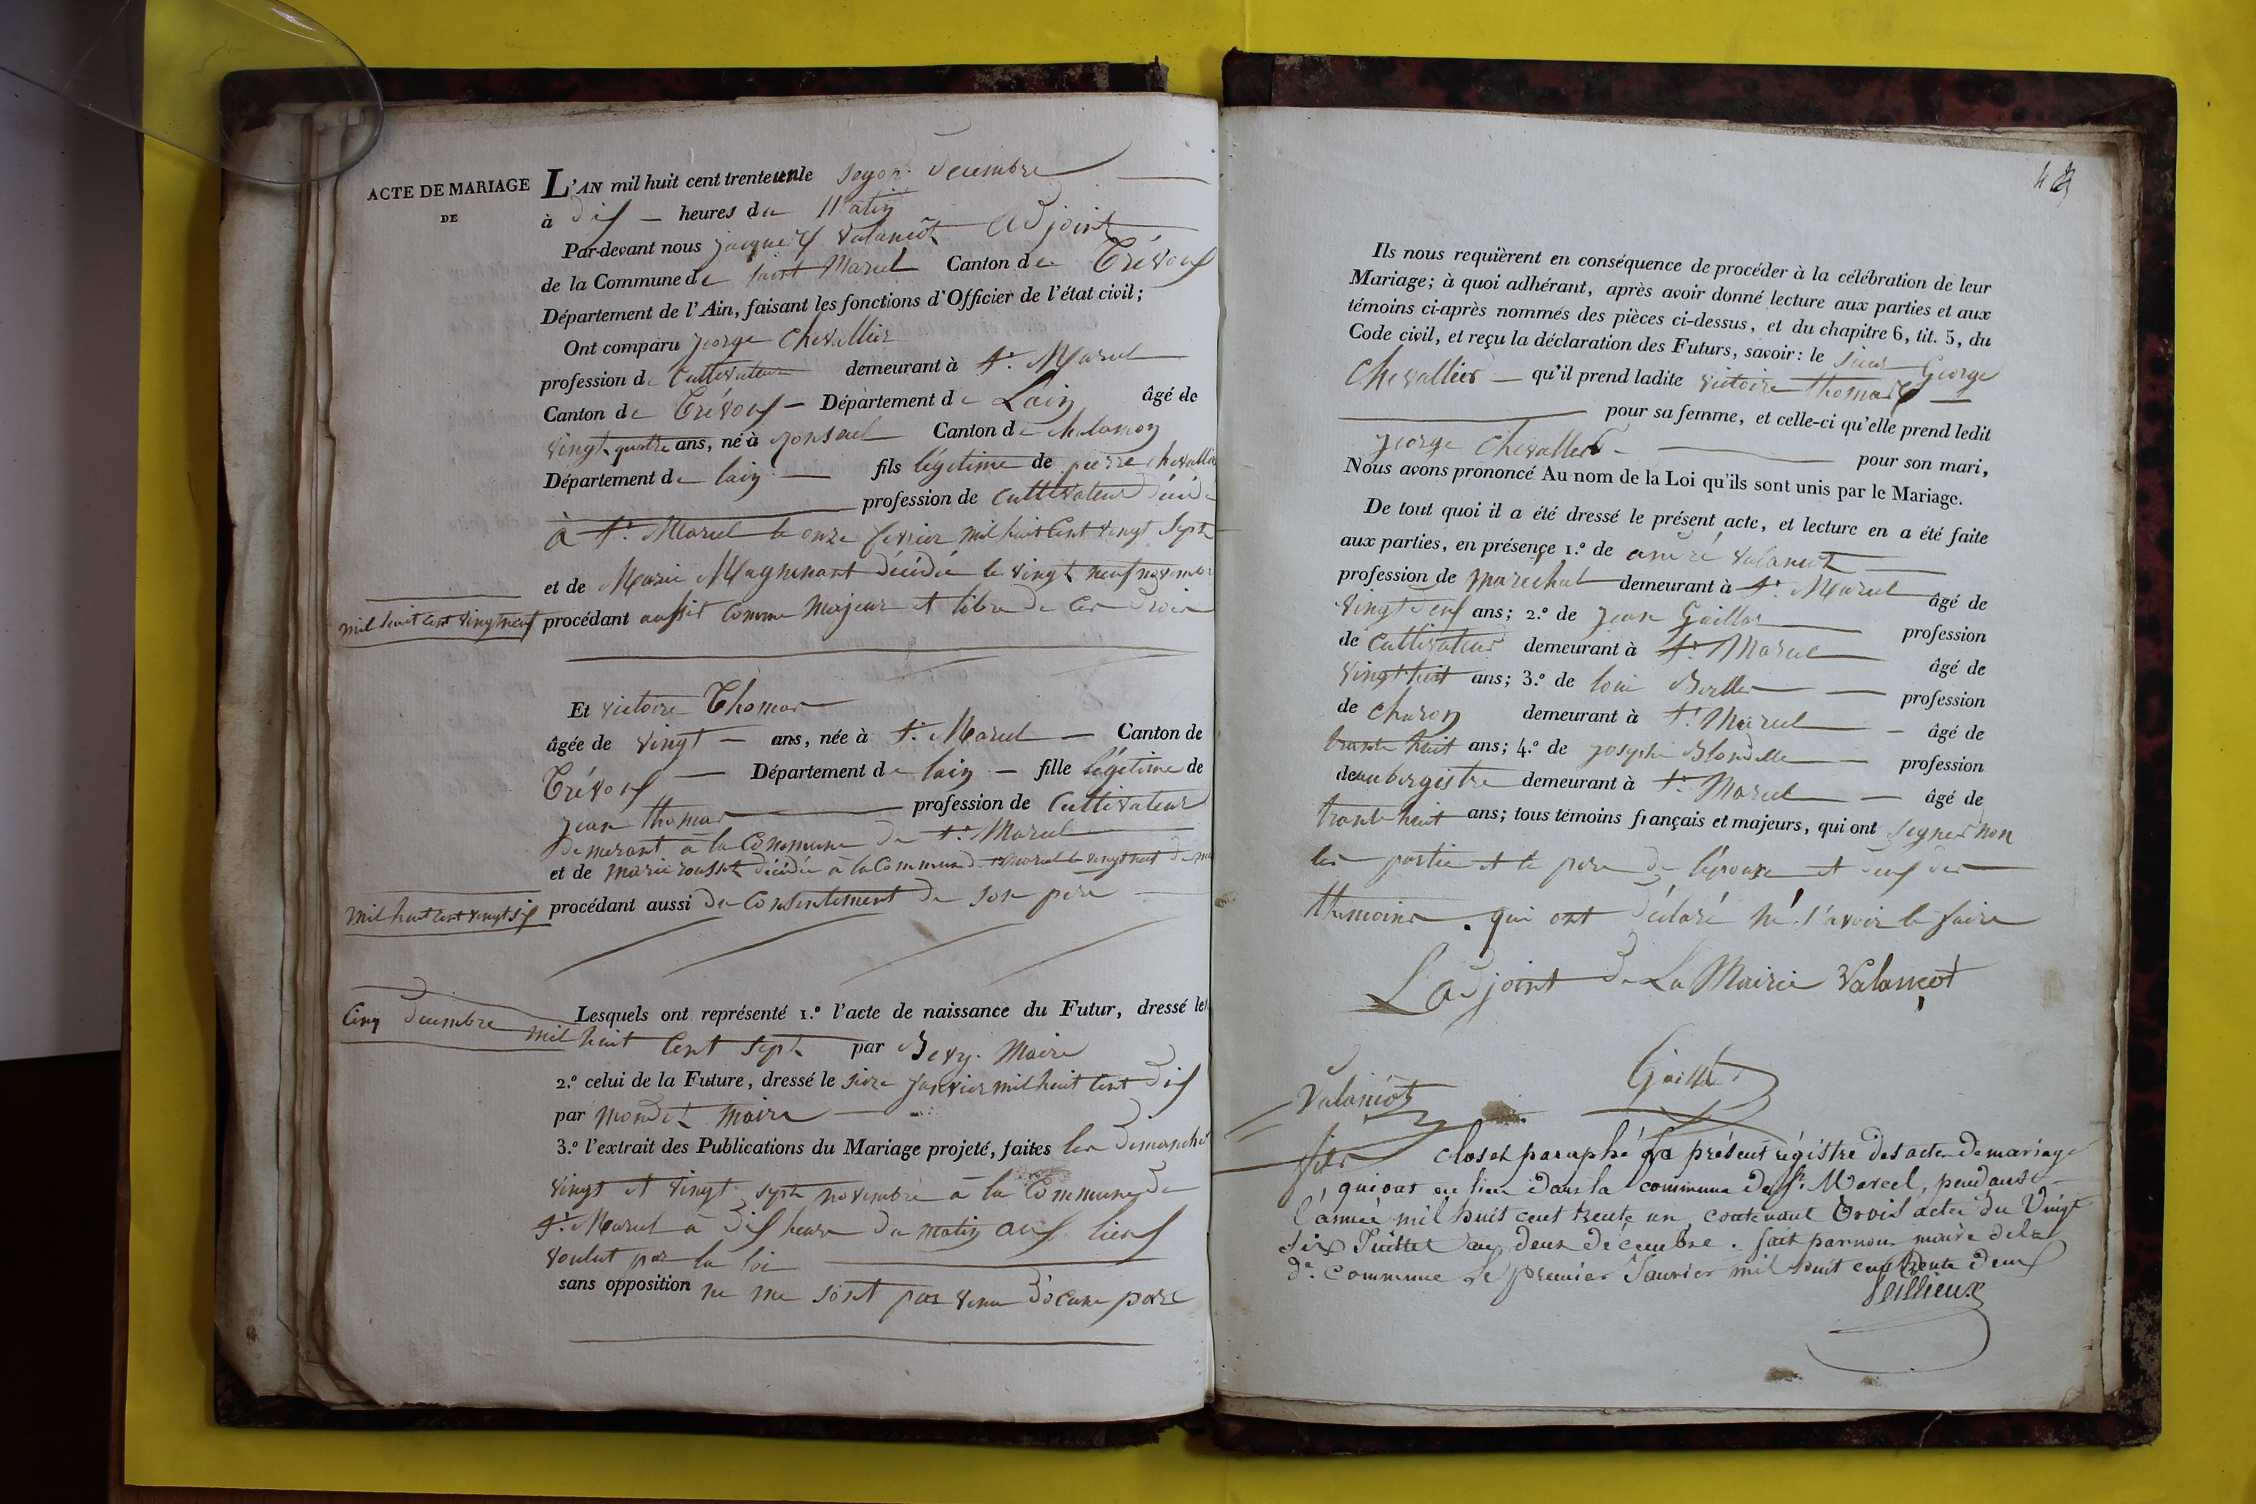 ACTE DE MARIAGE
DE
L'AN mil huit cent trente un le segon decembre
à dix heures du Matin
Par-devant nous jacques Valancot Adjoint
de la Commune de saint Marcel Canton de Trévoux
Département de l'Ain, faisant les fonctions d'Officier de l'état civil;
Ont comparu jeorge Chevallier
profession de Cultivateur demeurant à St. Marcel
Canton de Trévoux Département de Lain âgé de
vingt quatre ans, né à Canton de chalamon
Département de lain fils légitime de pierre chevallier
profession de Cultivateur décédé
à St. Marcel le onze fevrier mil huit Cent vingt Sept
et de Marie Magninant décédée le vingt neuf novembre
mil huit Cent vingt neuf procédant aussi Comme Majeur et libre de Ces Drois
Et victoire Thomas
âgée de vingt ans, née à St. Marcel Canton de
Trévoux Département de lain fille légitime de
jean thomas profession de Cultivateur
demerant à la Commune de St. Marcel
et de marie rousset décédée à la Commune de St. Marcel le vingt huit de mai
mil huit Cent vingt six procédant aussi du Consentement de son père
Lesquels ont représenté 1.º l'acte de naissance du Futur, dressé le
Cinq decembre mil huit Cent Sept par Bevy Maire
2.º celui de la Future, dressé le seize janvier mil huit Cent dix
par mondet maire
3.º l'extrait des Publications du Mariage projeté, faites les dimanche
vingt et vingt sept novembre à la Commune de
St. Marcel à dix heure du matin aux lieux
voulut par la loi
sans opposition ne me sont par venu d'ocune pare
Ils nous requièrent en conséquence de procéder à la célébration de leur
Mariage; à quoi adhérant, après avoir donné lecture aux parties et aux
témoins ci-après nommés des pièces ci-dessus, et du chapitre 6, tit. 5, du
Code civil, et reçu la déclaration des Futurs, savoir: le sieur George
Chevallier qu'il prend ladite victoire thomas
pour sa femme, et celle-ci qu'elle prend ledit
jeorge Chevallier pour son mari,
Nous avons prononcé Au nom de la Loi qu'ils sont unis par le Mariage.
De tout quoi il a été dressé le présent acte, et lecture en a été faite
aux parties, en présence 1.º de andré valancot
profession de marechal demeurant à St. Marcel âgé de
vingt deux ans; 2.º de jean Gaillar profession
de Cultivateur demeurant à St. Marcel âgé de
vingt huit ans; 3.º de loui profession
de charon demeurant à St. Marcel âgé de
trante huit ans; 4.º de joseph Blondelle profession
de aubergistre demeurant à St. Marcel âgé de
trante huit ans; tous témoins français et majeurs, qui ont segner non
les partie et le pere de l'épouze et deux des
thémoins qui ont déclaré né s'avoir le faire
L'adjoint de La Mairie Valancot
Valancot
Gaillar
fils
Clos et paraphé le présent régistre des actes de mariage
qui ont eu lieu dans la commune de St. Marcel, pendant
l'année mil huit cent trente un, contenant trois actes du Vingt
six Juillet au deux decembre. fait par nous maire de la
de. commune le premier Janvier mil huit cent trente deux